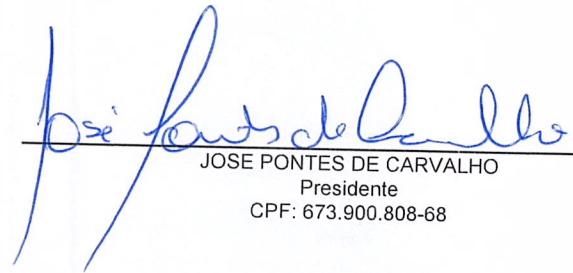 José Pontes de Carvalho
JOSE PONTES DE CARVALHO
Presidente
CPF: 673.900.808-68